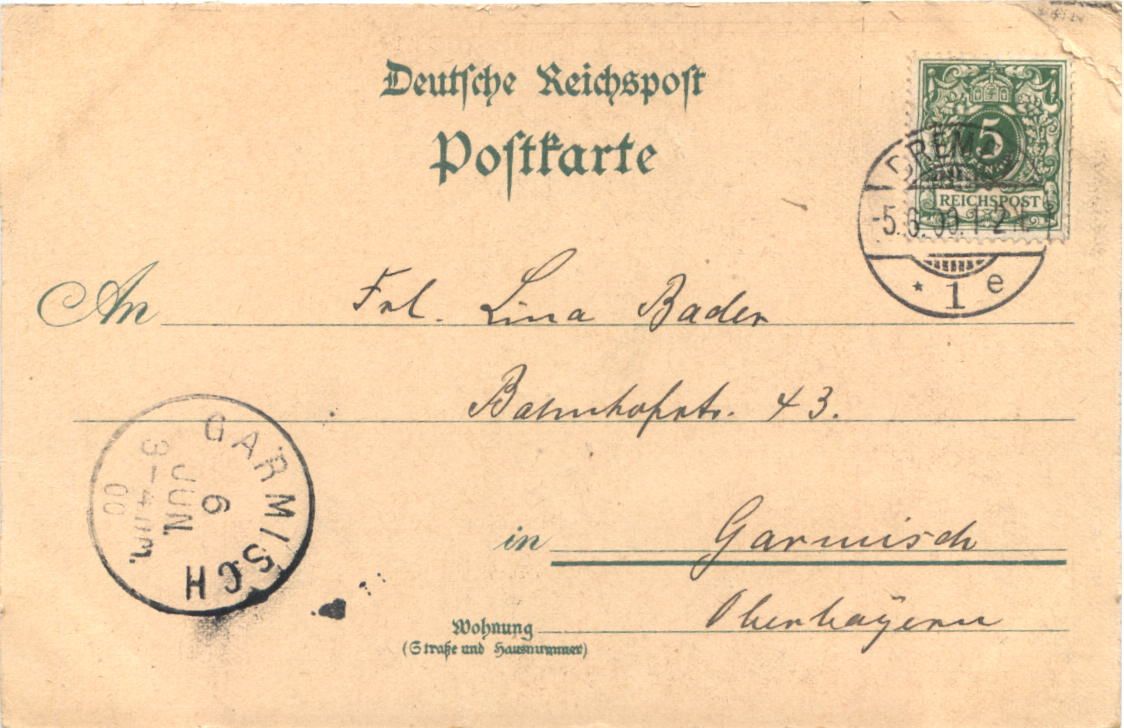 Deutsche Reichspost
Postkarte
5
REICHSPOST
BREMEN
-5.6.00.1-2N.
* 1 e
An Frl. Lina Bader
Bahnhofstr. 43.
in Garmisch
Oberbayern
Wohnung
(Straße und Hausnummer)
GARMISCH
6
JUN.
3-4 NM.
00